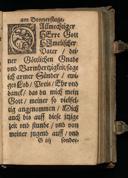 am Donnerstage.
Allmechtiger
HErre Gott
Himelischer
Vater / dei-
ner Göttlichen Gnade
vnd Barmhertzigkeit / sage
ich armer Sünder / ewi-
ges Lob / Preis / Ehr vnd
danck / das du mich mein
Gott / meiner so vielfel-
tig angenommen / Mich
auch bis auff diese itzige
zeit vnd stunde / vnd von
meiner jugend auff / mit
G iij sonder-